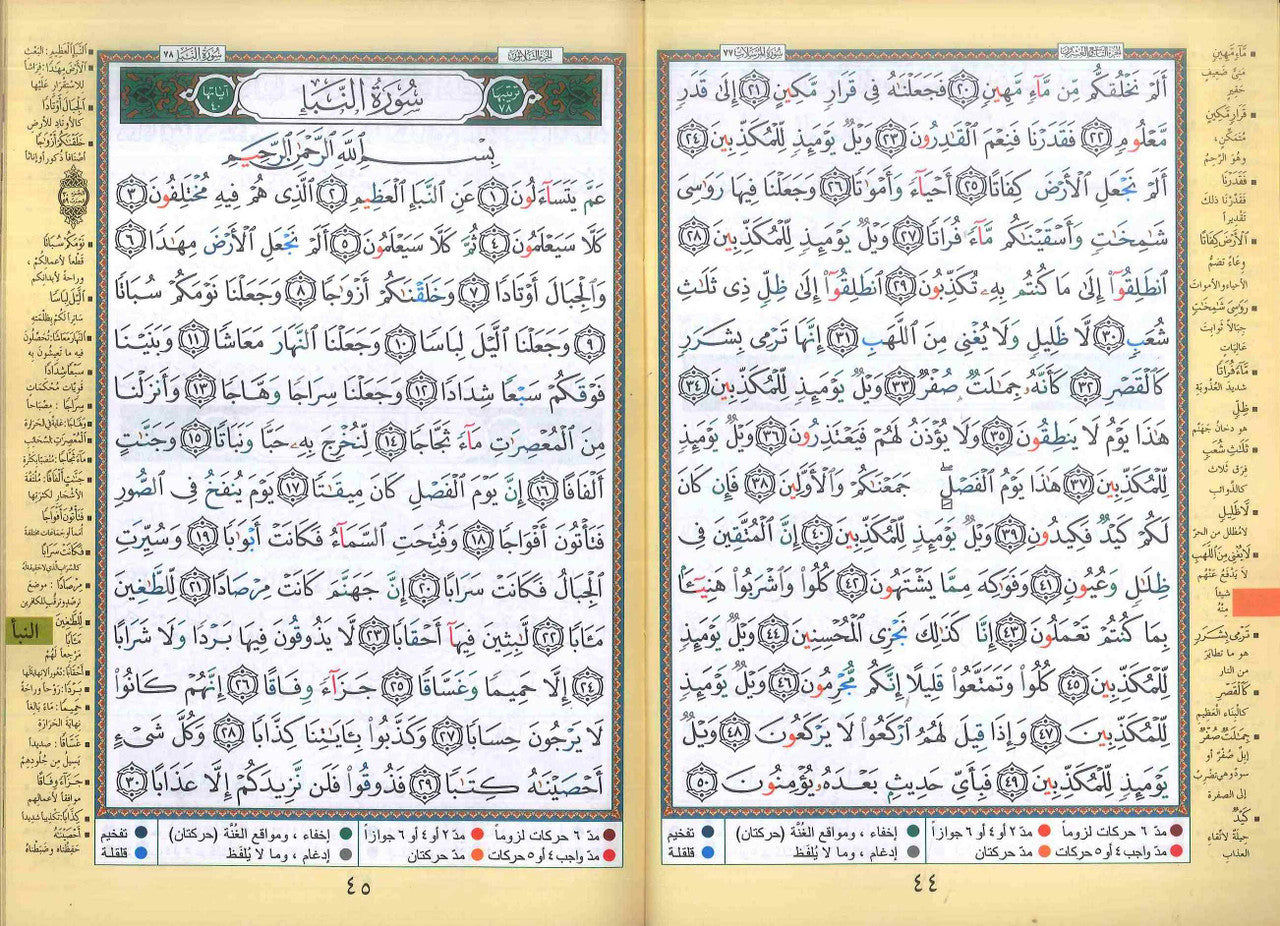 سورة المرسلات ٧٧
الجزء التاسع والعشرون
أَلَمْ نَخْلُقكُّم مِّن مَّآءٍ مَّهِينٍ ٢٠ فَجَعَلْنَٰهُ فِى قَرَارٍ مَّكِينٍ ٢١ إِلَىٰ قَدَرٍ
مَّعْلُومٍ ٢٢ فَقَدَرْنَا فَنِعْمَ ٱلْقَٰدِرُونَ ٢٣ وَيْلٌ يَوْمَئِذٍ لِّلْمُكَذِّبِينَ ٢٤
أَلَمْ نَجْعَلِ ٱلْأَرْضَ كِفَاتًا ٢٥ أَحْيَآءً وَأَمْوَٰتًا ٢٦ وَجَعَلْنَا فِيهَا رَوَٰسِىَ
شَٰمِخَٰتٍ وَأَسْقَيْنَٰكُم مَّآءً فُرَاتًا ٢٧ وَيْلٌ يَوْمَئِذٍ لِّلْمُكَذِّبِينَ ٢٨
ٱنطَلِقُوٓا۟ إِلَىٰ مَا كُنتُم بِهِۦ تُكَذِّبُونَ ٢٩ ٱنطَلِقُوٓا۟ إِلَىٰ ظِلٍّ ذِى ثَلَٰثِ
شُعَبٍ ٣٠ لَّا ظَلِيلٍ وَلَا يُغْنِى مِنَ ٱللَّهَبِ ٣١ إِنَّهَا تَرْمِى بِشَرَرٍ
كَٱلْقَصْرِ ٣٢ كَأَنَّهُۥ جِمَٰلَتٌ صُفْرٌ ٣٣ وَيْلٌ يَوْمَئِذٍ لِّلْمُكَذِّبِينَ ٣٤
هَٰذَا يَوْمُ لَا يَنطِقُونَ ٣٥ وَلَا يُؤْذَنُ لَهُمْ فَيَعْتَذِرُونَ ٣٦ وَيْلٌ يَوْمَئِذٍ
لِّلْمُكَذِّبِينَ ٣٧ هَٰذَا يَوْمُ ٱلْفَصْلِ ۖ جَمَعْنَٰكُمْ وَٱلْأَوَّلِينَ ٣٨ فَإِن كَانَ
لَكُمْ كَيْدٌ فَكِيدُونِ ٣٩ وَيْلٌ يَوْمَئِذٍ لِّلْمُكَذِّبِينَ ٤٠ إِنَّ ٱلْمُتَّقِينَ فِى
ظِلَٰلٍ وَعُيُونٍ ٤١ وَفَوَٰكِهَ مِمَّا يَشْتَهُونَ ٤٢ كُلُوا۟ وَٱشْرَبُوا۟ هَنِيٓـًٔۢا
بِمَا كُنتُمْ تَعْمَلُونَ ٤٣ إِنَّا كَذَٰلِكَ نَجْزِى ٱلْمُحْسِنِينَ ٤٤ وَيْلٌ يَوْمَئِذٍ
لِّلْمُكَذِّبِينَ ٤٥ كُلُوا۟ وَتَمَتَّعُوا۟ قَلِيلًا إِنَّكُم مُّجْرِمُونَ ٤٦ وَيْلٌ يَوْمَئِذٍ
لِّلْمُكَذِّبِينَ ٤٧ وَإِذَا قِيلَ لَهُمُ ٱرْكَعُوا۟ لَا يَرْكَعُونَ ٤٨ وَيْلٌ
يَوْمَئِذٍ لِّلْمُكَذِّبِينَ ٤٩ فَبِأَىِّ حَدِيثٍۭ بَعْدَهُۥ يُؤْمِنُونَ ٥٠
مَّآءٍ مَّهِينٍ
مَنِيٍّ ضعيفٍ
حَقيرٍ
قَرَارٍ مَّكِينٍ
مُتَمَكِّنٍ،
وهُوَ الرَّحِمُ
فَقَدَرْنَا
فَقَدَّرْنَا ذلك
تَقْديراً
ٱلْأَرْضَ كِفَاتًا
وِعَاءً تضمُّ
الأحياء والأموات
رَوَٰسِىَ شَٰمِخَٰتٍ
جبالاً ثوابتَ
عَاليَاتٍ
مَّآءً فُرَاتًا
شَديدَ العُذوبَةِ
ظِلٍّ
هو دخانُ جهنّم
ثَلَٰثِ شُعَبٍ
فِرَق ثلاث
كالذّوائبِ
لَّا ظَلِيلٍ
لا مُظلّل من الحرّ
لَا يُغْنِى مِنَ ٱللَّهَبِ
لا يَدْفَعُ عَنْهُم
شيئاً
مِنْهُ
تَرْمِى بِشَرَرٍ
هو ما تطايَرَ
من النار
كَٱلْقَصْرِ
كالبِناء العَظيم
جِمَٰلَتٌ صُفْرٌ
إبِلٌ صُفْرٌ أو
سودٌ وهي تضربُ
إلى الصفرة
كَيْدٌ
حِيلَةٌ لاتّقاءِ
العذابِ
مدّ ٦ حركات لزوماً
مدّ ٢ أو ٤ أو ٦ جوازاً
إخفاء ، ومواقع الغُنَّة (حركتان)
تفخيم
مدّ واجب ٤ أو ٥ حركات
مدّ حركتان
إدغام ، وما لا يُلفَظ
قلقلة
٤٤
الجزء الثلاثون
سورة النبإ ٧٨
ترتيبها ٧٨
سُورَةُ النَّبَإِ
آياتها ٤٠
بِسْمِ ٱللَّهِ ٱلرَّحْمَٰنِ ٱلرَّحِيمِ
عَمَّ يَتَسَآءَلُونَ ١ عَنِ ٱلنَّبَإِ ٱلْعَظِيمِ ٢ ٱلَّذِى هُمْ فِيهِ مُخْتَلِفُونَ ٣
كَلَّا سَيَعْلَمُونَ ٤ ثُمَّ كَلَّا سَيَعْلَمُونَ ٥ أَلَمْ نَجْعَلِ ٱلْأَرْضَ مِهَٰدًا ٦
وَٱلْجِبَالَ أَوْتَادًا ٧ وَخَلَقْنَٰكُمْ أَزْوَٰجًا ٨ وَجَعَلْنَا نَوْمَكُمْ سُبَاتًا
٩ وَجَعَلْنَا ٱلَّيْلَ لِبَاسًا ١٠ وَجَعَلْنَا ٱلنَّهَارَ مَعَاشًا ١١ وَبَنَيْنَا
فَوْقَكُمْ سَبْعًا شِدَادًا ١٢ وَجَعَلْنَا سِرَاجًا وَهَّاجًا ١٣ وَأَنزَلْنَا
مِنَ ٱلْمُعْصِرَٰتِ مَآءً ثَجَّاجًا ١٤ لِّنُخْرِجَ بِهِۦ حَبًّا وَنَبَاتًا ١٥ وَجَنَّٰتٍ
أَلْفَافًا ١٦ إِنَّ يَوْمَ ٱلْفَصْلِ كَانَ مِيقَٰتًا ١٧ يَوْمَ يُنفَخُ فِى ٱلصُّورِ
فَتَأْتُونَ أَفْوَاجًا ١٨ وَفُتِحَتِ ٱلسَّمَآءُ فَكَانَتْ أَبْوَٰبًا ١٩ وَسُيِّرَتِ
ٱلْجِبَالُ فَكَانَتْ سَرَابًا ٢٠ إِنَّ جَهَنَّمَ كَانَتْ مِرْصَادًا ٢١ لِّلطَّٰغِينَ
مَـَٔابًا ٢٢ لَّٰبِثِينَ فِيهَآ أَحْقَابًا ٢٣ لَّا يَذُوقُونَ فِيهَا بَرْدًا وَلَا شَرَابًا
٢٤ إِلَّا حَمِيمًا وَغَسَّاقًا ٢٥ جَزَآءً وِفَاقًا ٢٦ إِنَّهُمْ كَانُوا۟
لَا يَرْجُونَ حِسَابًا ٢٧ وَكَذَّبُوا۟ بِـَٔايَٰتِنَا كِذَّابًا ٢٨ وَكُلَّ شَىْءٍ
أَحْصَيْنَٰهُ كِتَٰبًا ٢٩ فَذُوقُوا۟ فَلَن نَّزِيدَكُمْ إِلَّا عَذَابًا ٣٠
النَّبَإِ ٱلْعَظِيمِ : البَعْث
ٱلْأَرْضَ مِهَٰدًا : فِرَاشاً
للاستقرار عَلَيْها
ٱلْجِبَالَ أَوْتَادًا
كالأوتادِ للأرض
خَلَقْنَٰكُمْ أَزْوَٰجًا
أصْنافاً ذُكوراً وإناثاً
نَوْمَكُمْ سُبَاتًا
قَطْعاً لأعمالِكُمْ ،
وراحةً لأبدانِكم
ٱلَّيْلَ لِبَاسًا
سَاتِراً لَكُمْ بظُلْمَتِهِ
ٱلنَّهَارَ مَعَاشًا : تُحَصِّلُونَ
فيه ما تَعيشُونَ به
سَبْعًا شِدَادًا
قَويّاتٍ مُحْكَمَات
سِرَاجًا : مِصْبَاحاً
وَهَّاجًا : غاية في الحَرَارة
ٱلْمُعْصِرَٰتِ : السُّحُب
مَآءً ثَجَّاجًا : مُنْصَبّاً بكَثْرة
جَنَّٰتٍ أَلْفَافًا : مُلْتَفَّة
الأشجار لكثرتها
فَتَأْتُونَ أَفْوَاجًا
أمماً أو جماعات مختلفة
فَكَانَتْ سَرَابًا
كالسّراب الذي لا حقيقة له
مِرْصَادًا : موضعَ
ترصّدٍ وترقّبٍ للكافرين
لِّلطَّٰغِينَ
مَـَٔابًا
مرجعاً لَهُمْ
أَحْقَابًا : دُهُوراً لا نهاية لها
بَرْدًا : رَوْحاً وراحَةً
حَمِيمًا : مَاءً بَالغاً
نِهايَةَ الحَرَارَة
غَسَّاقًا : صَديداً
يَسيلُ من جُلودِهِمْ
جَزَآءً وِفَاقًا
موافقاً لأعمالهم
كِذَّابًا : تكذيباً شديداً
أَحْصَيْنَٰهُ
حَفِظْنَاه وضَبَطْنَاهُ
النبأ
مدّ ٦ حركات لزوماً
مدّ ٢ أو ٤ أو ٦ جوازاً
إخفاء ، ومواقع الغُنَّة (حركتان)
تفخيم
مدّ واجب ٤ أو ٥ حركات
مدّ حركتان
إدغام ، وما لا يُلفَظ
قلقلة
٤٥